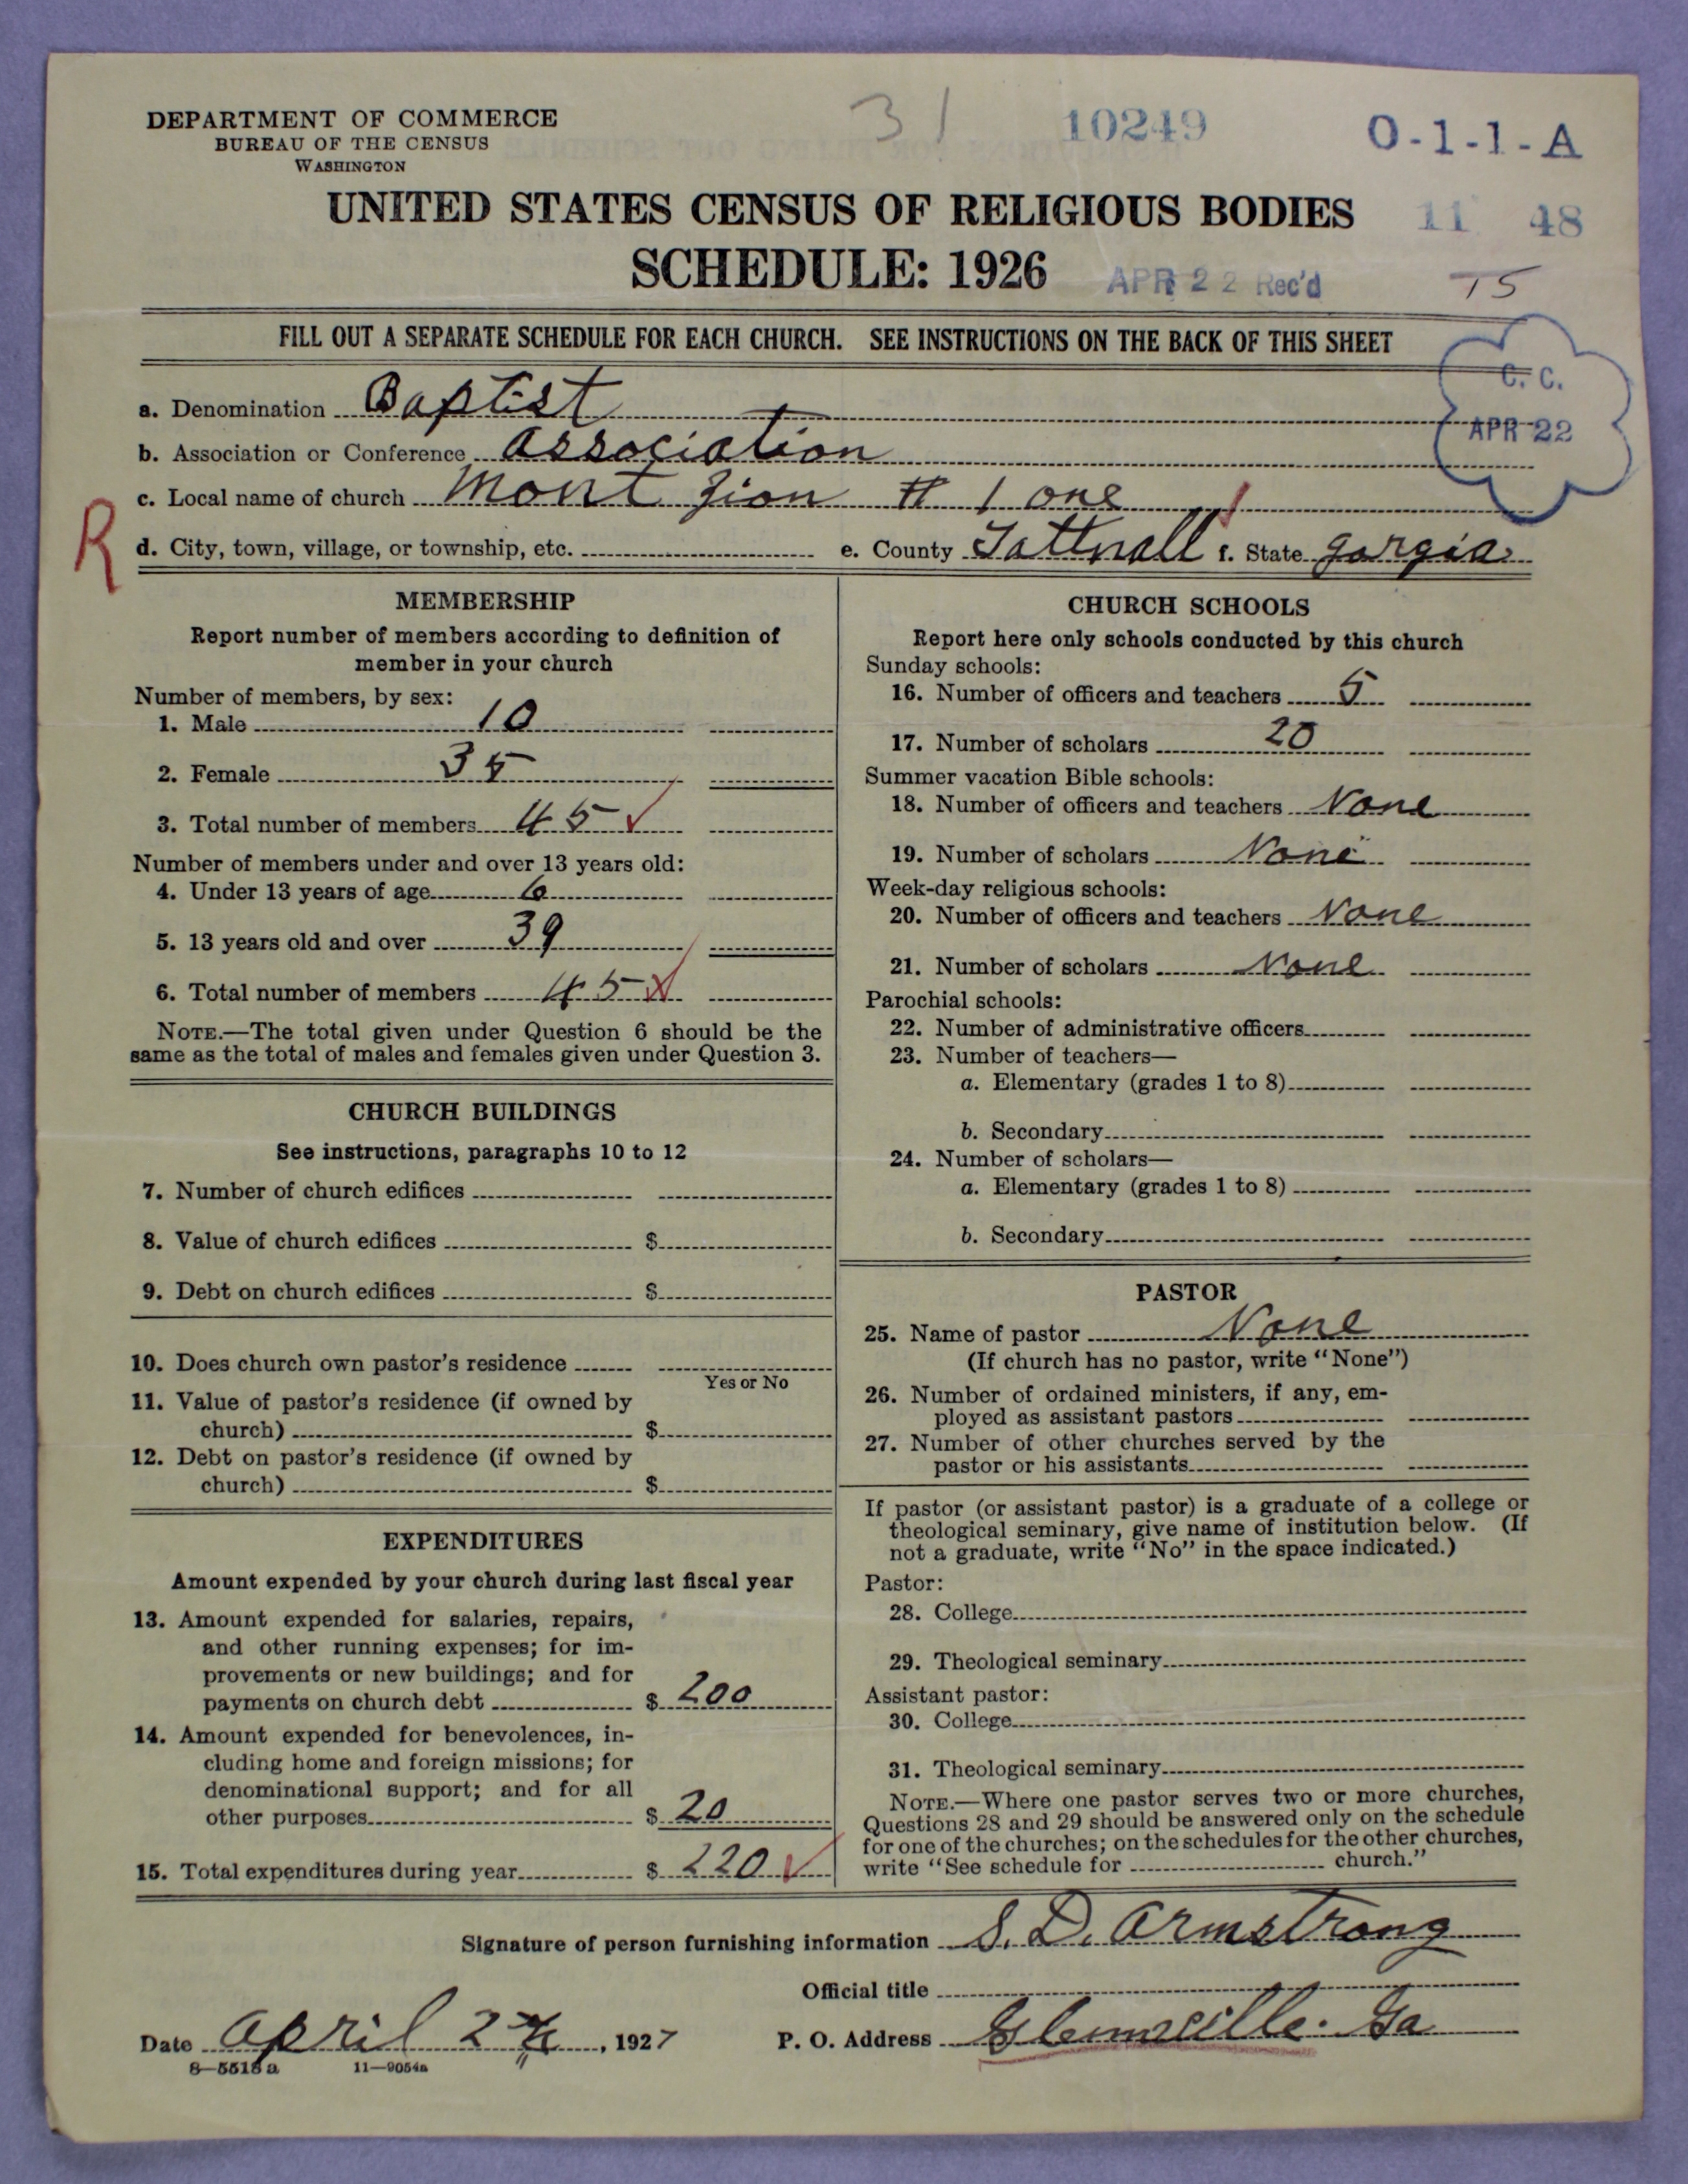 DEPARTMENT OF COMMERCE
BUREAU OF THE CENSUS
WASHINGTON
31
10249
O-1-1-A
UNITED STATES CENSUS OF RELIGIOUS BODIES
11 48
SCHEDULE: 1926
APR 22 Rec'd
15
FILL OUT A SEPARATE SCHEDULE FOR EACH CHURCH. SEE INSTRUCTIONS ON THE BACK OF THIS SHEET
C. C.
APR 22
a. Denomination Baptist
b. Association or Conference association
c. Local name of church Mont Zion # 1 one
R
d. City, town, village, or township, etc. e. County Tattnall f. State gorgia
MEMBERSHIP
Report number of members according to definition of
member in your church
Number of members, by sex:
1. Male 10
2. Female 35
3. Total number of members 45
Number of members under and over 13 years old:
4. Under 13 years of age 6
5. 13 years old and over 39
6. Total number of members 45
NOTE.—The total given under Question 6 should be the
same as the total of males and females given under Question 3.
CHURCH BUILDINGS
See instructions, paragraphs 10 to 12
7. Number of church edifices
8. Value of church edifices $
9. Debt on church edifices $
10. Does church own pastor's residence
Yes or No
11. Value of pastor's residence (if owned by
church) $
12. Debt on pastor's residence (if owned by
church) $
EXPENDITURES
Amount expended by your church during last fiscal year
13. Amount expended for salaries, repairs,
and other running expenses; for im-
provements or new buildings; and for
payments on church debt $ 200
14. Amount expended for benevolences, in-
cluding home and foreign missions; for
denominational support; and for all
other purposes $ 20
15. Total expenditures during year $ 220
CHURCH SCHOOLS
Report here only schools conducted by this church
Sunday schools:
16. Number of officers and teachers 5
17. Number of scholars 20
Summer vacation Bible schools:
18. Number of officers and teachers None
19. Number of scholars None
Week-day religious schools:
20. Number of officers and teachers None
21. Number of scholars None
Parochial schools:
22. Number of administrative officers
23. Number of teachers—
a. Elementary (grades 1 to 8)
b. Secondary
24. Number of scholars—
a. Elementary (grades 1 to 8)
b. Secondary
PASTOR
25. Name of pastor None
(If church has no pastor, write "None")
26. Number of ordained ministers, if any, em-
ployed as assistant pastors
27. Number of other churches served by the
pastor or his assistants
If pastor (or assistant pastor) is a graduate of a college or
theological seminary, give name of institution below. (If
not a graduate, write "No" in the space indicated.)
Pastor:
28. College
29. Theological seminary
Assistant pastor:
30. College
31. Theological seminary
NOTE.—Where one pastor serves two or more churches,
Questions 28 and 29 should be answered only on the schedule
for one of the churches; on the schedules for the other churches,
write "See schedule for church."
Signature of person furnishing information S. D. Armstrong
Official title
Date April 2 , 1927
P. O. Address Glennville. Ga
8—5513a 11—9054a